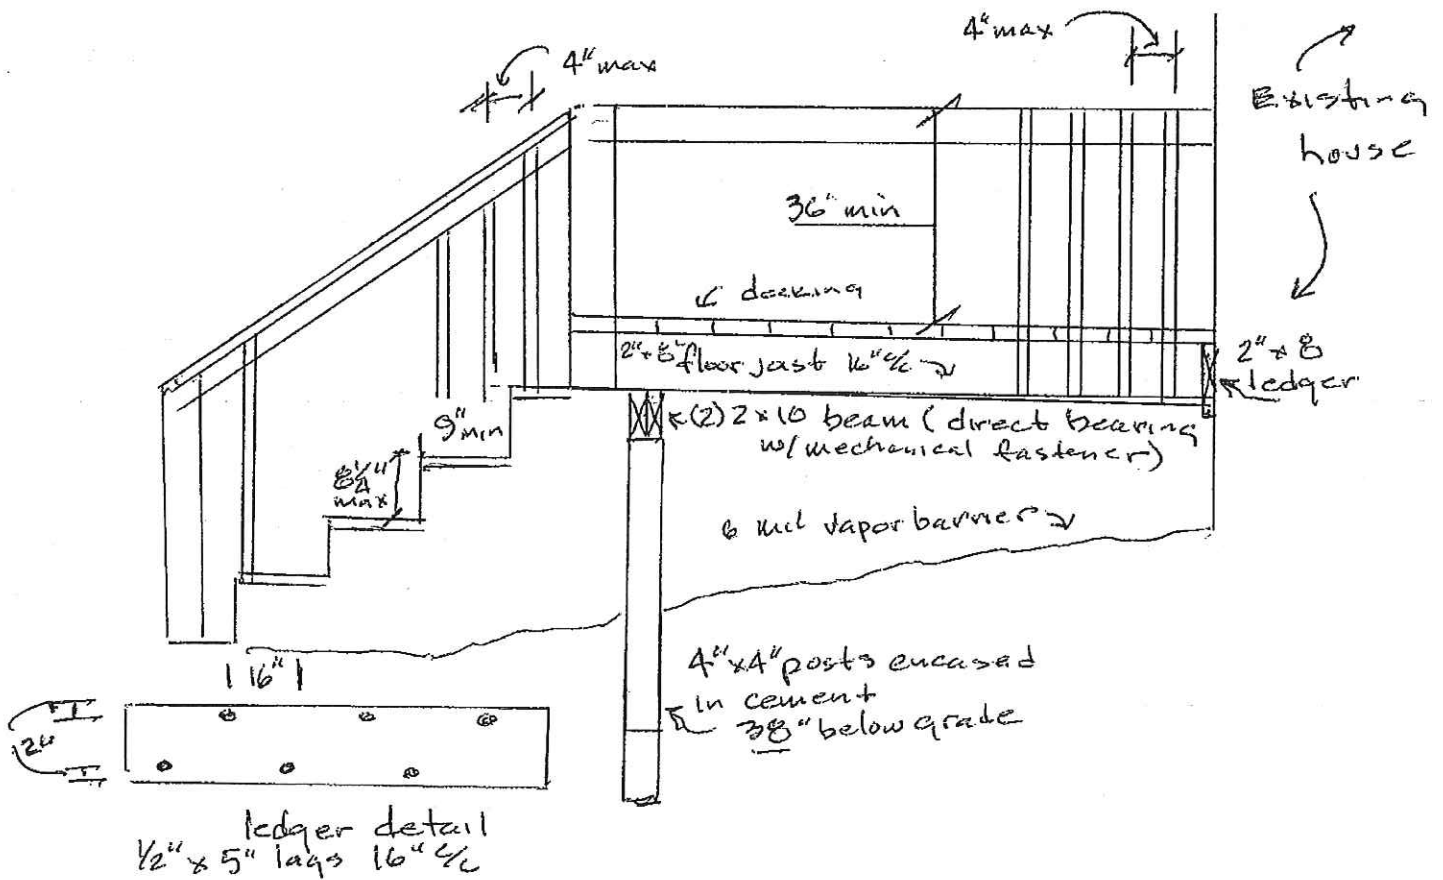 4" max
4" max
Existing
house
36" min
decking
2"x8" floor jost 16" c/c
2" x 8
ledger
9"
min
(2) 2x10 beam (direct bearing
w/mechanical fastener)
8 1/4"
max
6 mil vapor barrier
16"
4"x4" posts encased
in cement
38" below grade
2"
ledger detail
1/2" x 5" lags 16" c/c